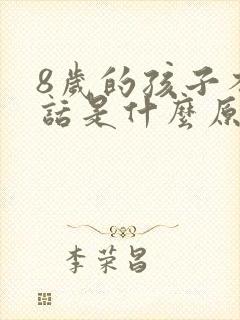 8歲的孩子
話是什麼原
李荣昌